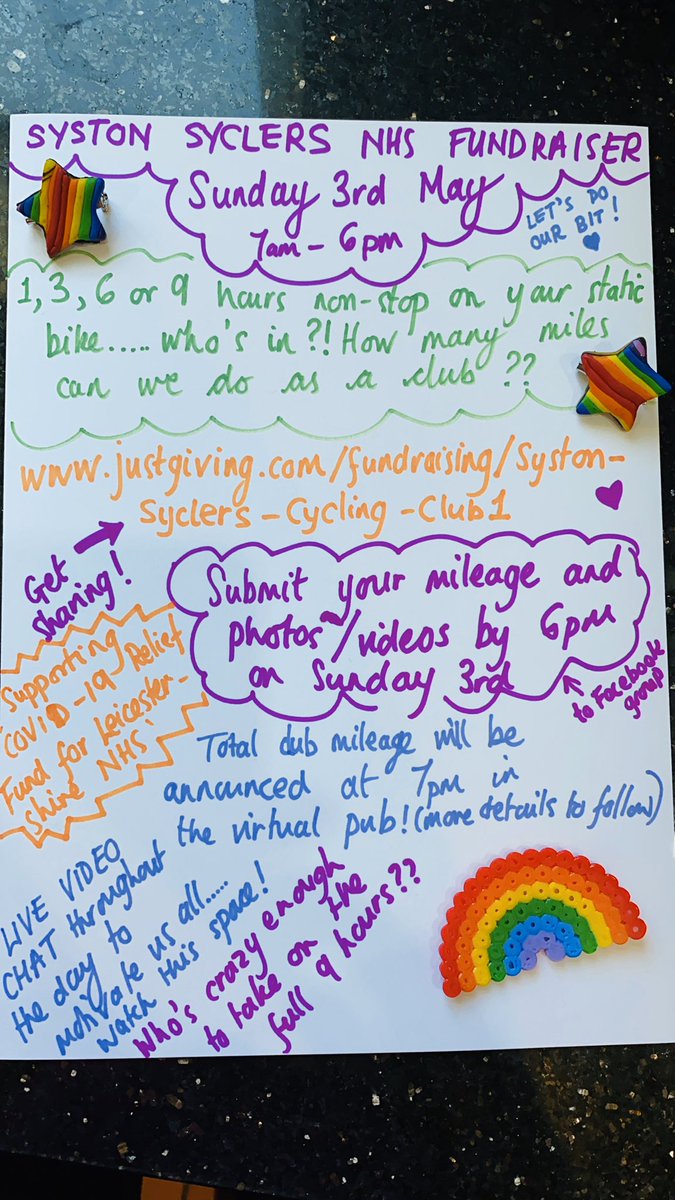 SYSTON SYCLERS NHS FUNDRAISER
Sunday 3rd May
7am - 6pm
LET'S DO
OUR BIT!
1, 3, 6 or 9 hours non-stop on your static
bike..... who's in?! How many miles
can we do as a club??
www.justgiving.com/fundraising/Syston-
Syclers-Cycling-Club1
Get
sharing!
Submit your mileage and
photos/videos by 6pm
on Sunday 3rd
to Facebook
group
Supporting
'COVID-19 Relief
Fund for Leicester-
shire NHS'
Total club mileage will be
announced at 7pm in
the virtual pub! (more details to follow)
LIVE VIDEO
CHAT throughout
the day to
motivate us all.....
watch this space!
Who's crazy enough
to take on the
full 9 hours??